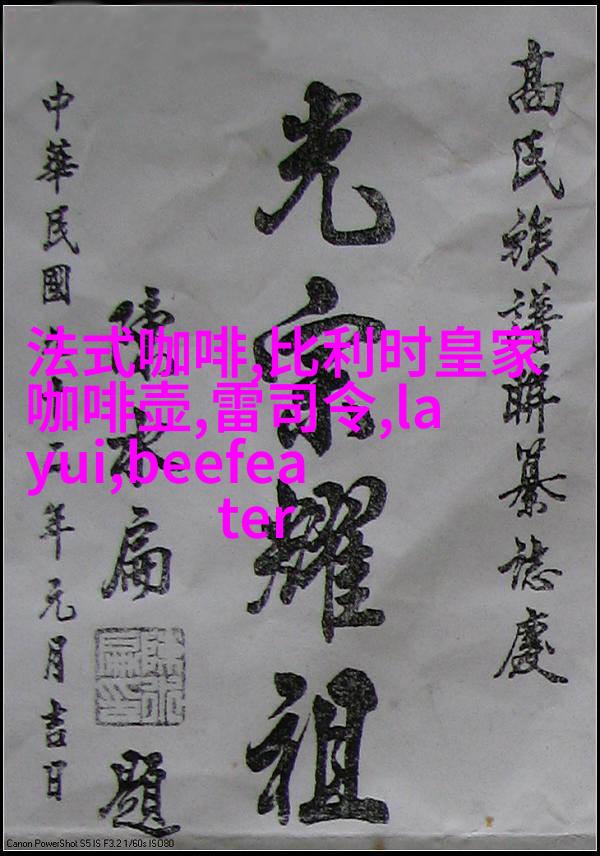 高氏族譜聯纂誌慶
光宗耀祖
陳水扁
題
中華民國年元月吉日
法式咖啡,比利时皇家
咖啡壶,雷司令,la
yui,beefea
ter
Canon PowerShot S5 IS F3.2 1/60s ISO80